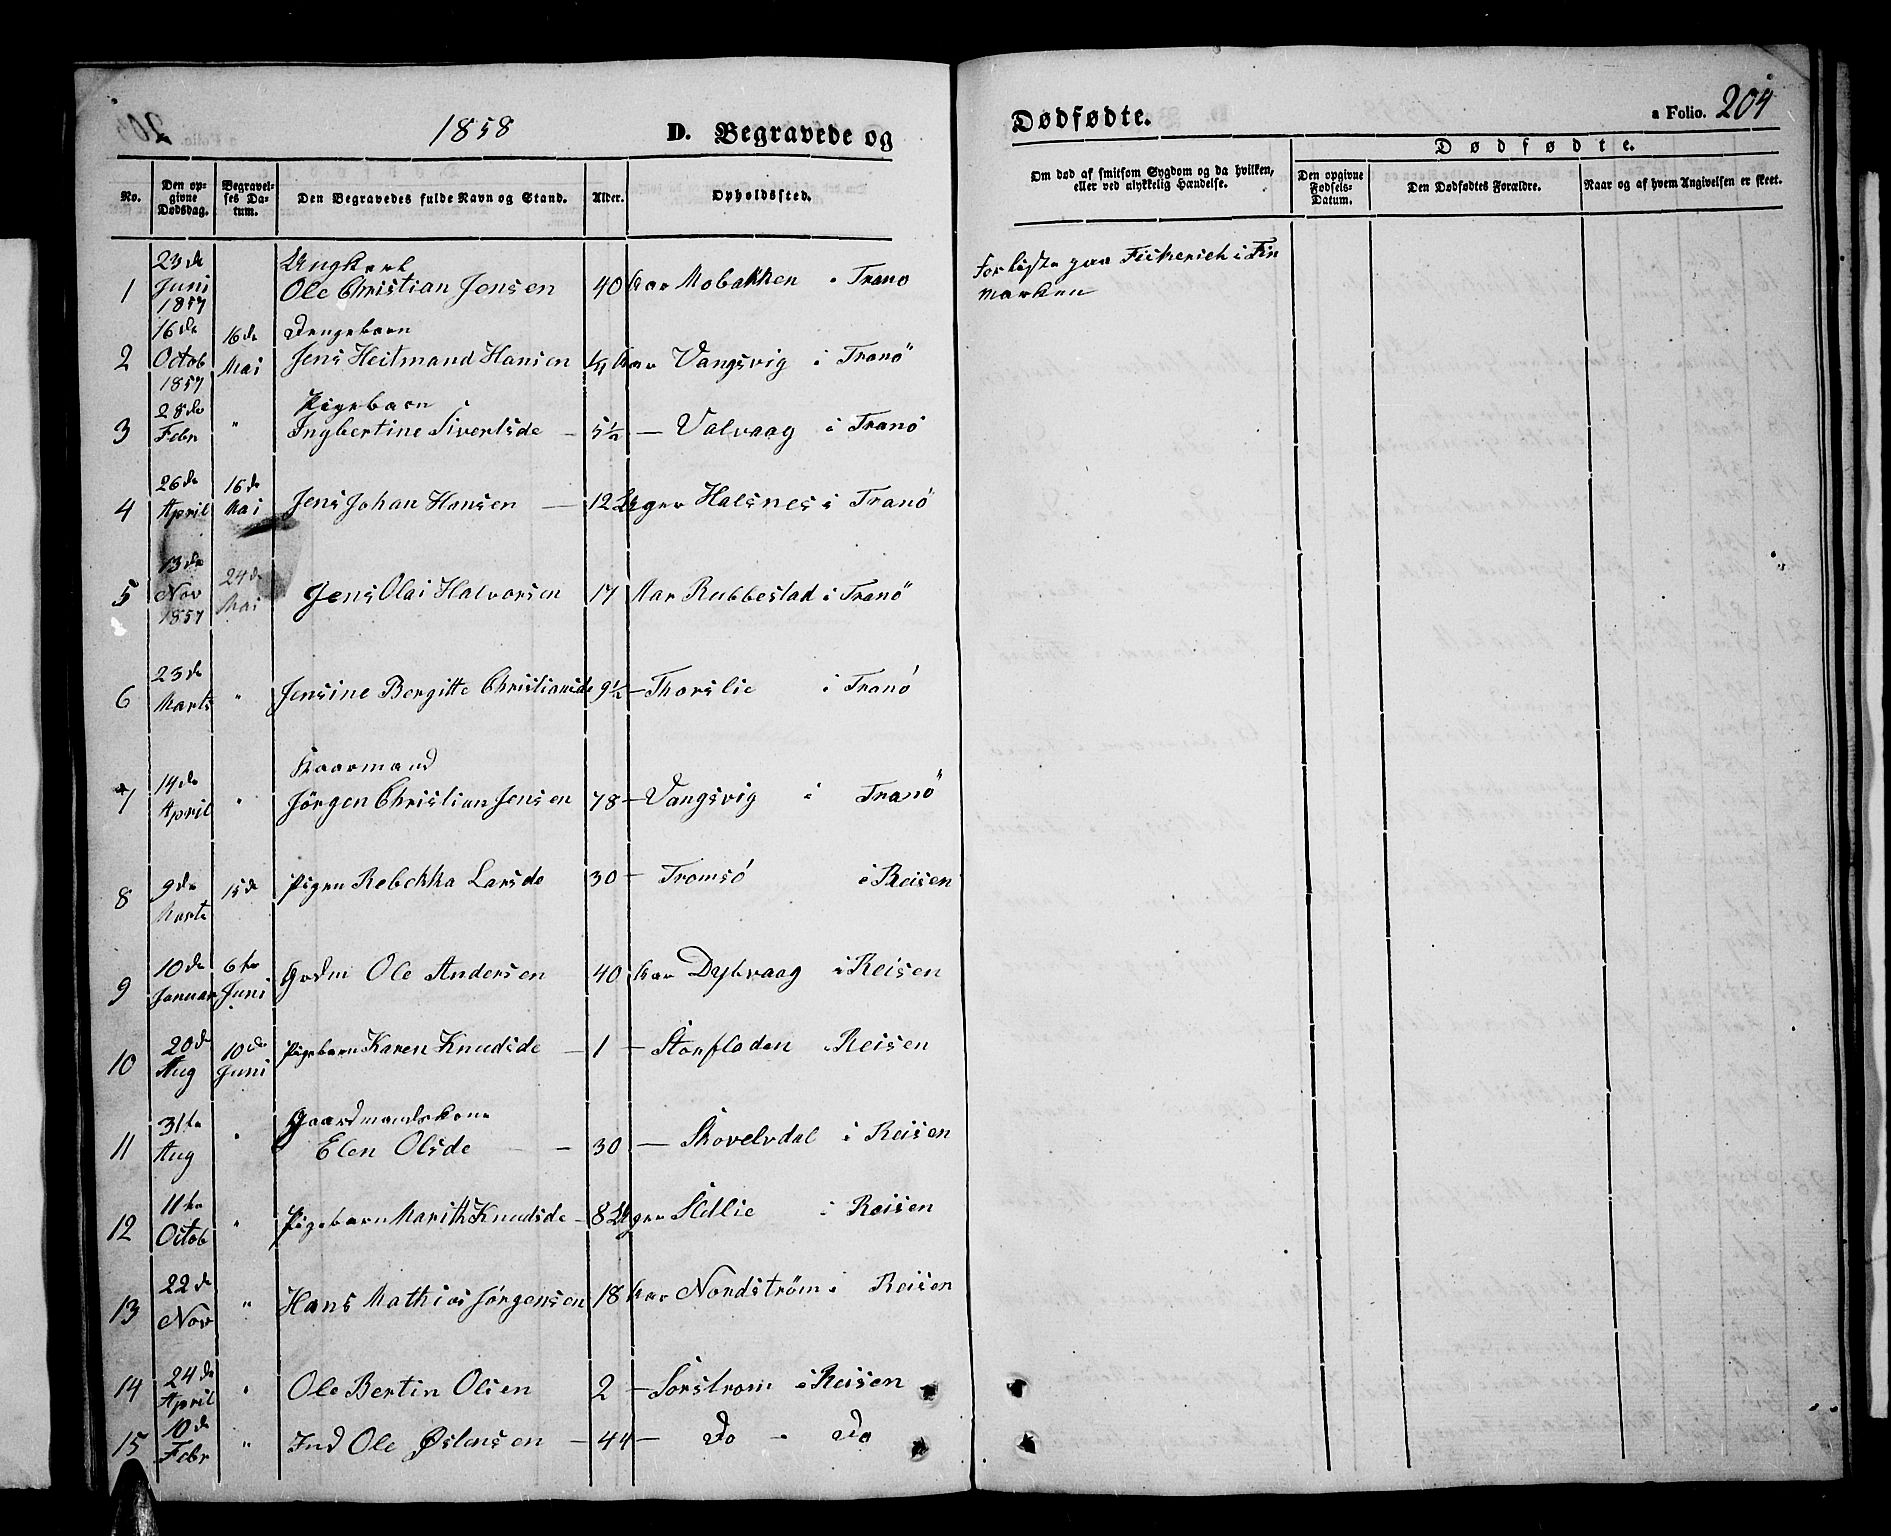 1858
D. Begravede og
Dødfødte.
a Folio. 204
No.
Den opgivne Dødsdag.
Begravelses Datum.
Den Begravedes fulde Navn og Stand.
Alder.
Opholdssted.
Om død af smitsom Sygdom og da hvilken, eller ved ulykkelig Hændelse.
Dødfødte.
Den opgivne Fødsels-Datum.
Den Dødfødtes Forældre.
Naar og af hvem Angivelsen er skeet.
1 23de Juni 1857 Ungkarl Ole Christian Jensen 40 Aar Mobakken i Tranø Forliste paa Fiskeriet i Finmarken
2 16de Octob 1857 16de Mai Drengebarn Jens Heitmand Hansen Aar Vangsvig i Tranö
3 28de Febr " Pigebarn Ingbertine Sivertsde – 5½ — Valvaag i Tranø
4 26de April 16de Mai Jens Johan Hansen — 12 Uger Halsnes i Tranö
5 13de Nov 1857 24de Mai Jens Olai Halvorsen 17 Aar Rubbestad i Tranö
6 23de Marts " Jensine Bergitte Christiansde 9½ — Thorslie i Tranó
7 14de April " Kaarmand Jörgen Christian Jensen 78 — Vangsvig i Tranö
8 9de Marts 15de Pigen Rebekka Larsde 30 — Tromsó i Reisen
9 10de Januar 6te Juni Grdm Ole Andersen 40 Aar Dybvaag i Reisen
10 20de Aug 10de Juni Pigebarn Karen Knudsde — 1 — Storfladen i Reisen
11 31te Aug " Gaardmandskone Elen Olsde — 30 — Skovelvdal i Reisen
12 11te Octob " Pigebarn Marith Knudsde – 8 Uger Sidlie i Reisen
13 22de Nov " Hans Mathias Jørgensen 18 Aar Nordstrøm i Reisen
14 24de April " Ole Bertin Olsen 2 — Sorstrom i Reisen
15 10de Febr " Ind Ole Østensen – 44 — Do – Do